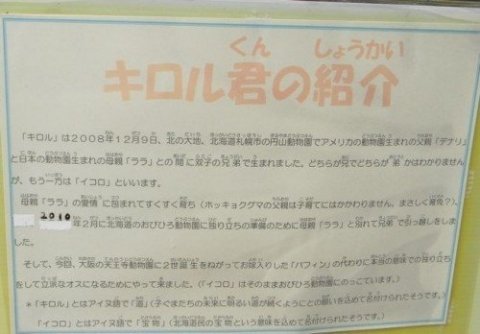 くん しょうかい
キロル君の紹介
「キロル」は2008年12月9日、北の大地、北海道札幌市の円山動物園でアメリカの動物園生まれの父親「デナリ」
と日本の動物園生まれの母親「ララ」との間に双子の兄弟で生まれました。どちらが兄でどちらが弟かはわかりません
が、もう一方は「イコロ」といいます。
母親「ララ」の愛情に包まれてすくすく育ち（ホッキョクグマの父親は子育てにはかかわりません、まさしく育児？）、
2010年2月に北海道のおびひろ動物園に独り立ちの準備のために母親「ララ」と別れて兄弟で引っ越しをしま
した。
そして、今回、大阪の天王寺動物園に2世誕生をねがってお嫁入りした「バフィン」の代わりに本当の意味での独り立ち
をして立派なオスになるためにやって来ました。（「イコロ」はそのままおびひろ動物園にのこっています。）
＊「キロル」とはアイヌ語で「道」（子ぐまたちの未来に明るい道が続くようにとの願いを込めて名付けられたそうです。）
「イコロ」とはアイヌ語で「宝物」（北海道民の宝物という意味を込めて名付けられたそうです。）